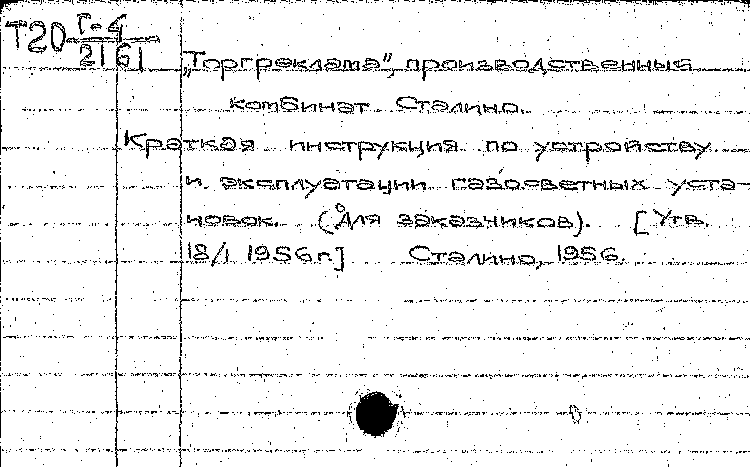 Т20 Г-4
2161
„Торгреклама", производственный
комбинат Сталино.
Краткая инструкция по устройству
и эксплуатации газосветных уста-
новок. (Для заказчиков). [Утв.
18/I 1956 г.] Сталино, 1956.